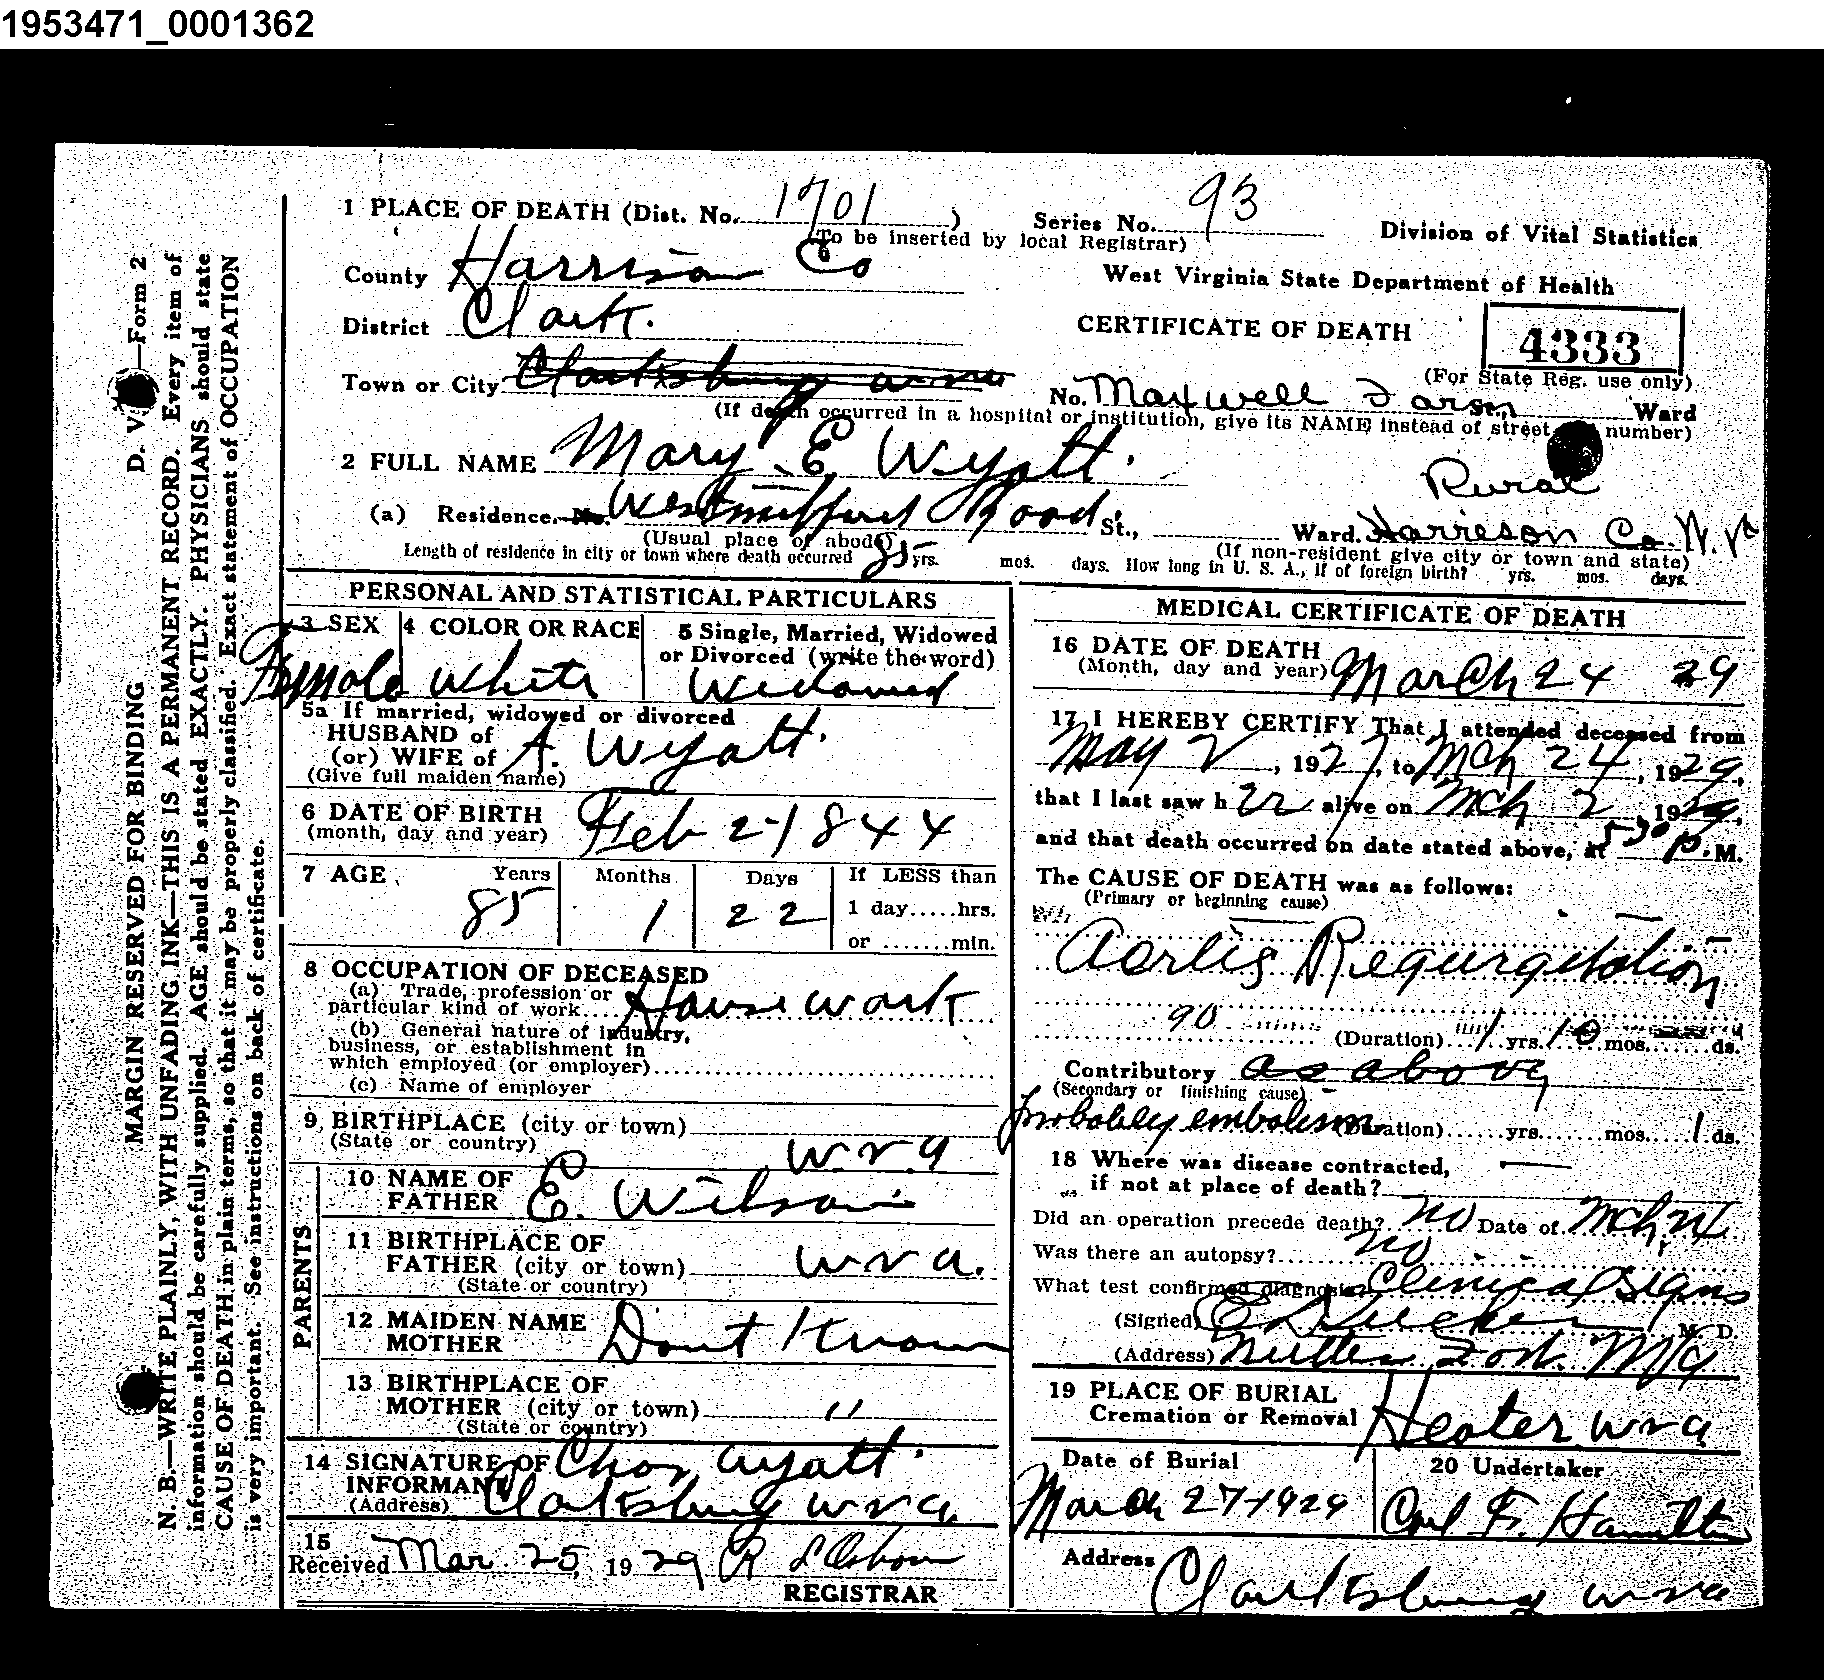 1953471_0001362
1 PLACE OF DEATH (Dist. No. 1701 ) Series No. 93 Division of Vital Statistics
(To be inserted by local Registrar)
County Harrison Co West Virginia State Department of Health
District Clark. CERTIFICATE OF DEATH 4333
Town or City Clarksburg W Va (For State Reg. use only)
No. Maxwell Farm St., Ward
(If death occurred in a hospital or institution, give its NAME instead of street and number)
2 FULL NAME Mary E Wyatt.
Rural
(a) Residence. No. Westmilford Road St., Ward. Harrison Co. W. Va
(Usual place of abode) (If non-resident give city or town and state)
Length of residence in city or town where death occurred 85 yrs. mos. days. How long in U. S. A., if of foreign birth? yrs. mos. days.
PERSONAL AND STATISTICAL PARTICULARS
3 SEX 4 COLOR OR RACE 5 Single, Married, Widowed
or Divorced (write the word)
Female White Widowed
5a If married, widowed or divorced
HUSBAND of
(or) WIFE of A. Wyatt.
(Give full maiden name)
6 DATE OF BIRTH
(month, day and year) Feb 2-1844
7 AGE Years Months Days If LESS than
85 1 22 1 day.....hrs.
or .......min.
8 OCCUPATION OF DECEASED
(a) Trade, profession or
particular kind of work.... House work
(b) General nature of industry,
business, or establishment in
which employed (or employer)
(c) Name of employer
9 BIRTHPLACE (city or town)
(State or country) W. V. a
PARENTS
10 NAME OF
FATHER E. Wilson
11 BIRTHPLACE OF
FATHER (city or town) W V a.
(State or country)
12 MAIDEN NAME
MOTHER Dont Know
13 BIRTHPLACE OF
MOTHER (city or town) "
(State or country)
14 SIGNATURE OF Chas Wyatt.
INFORMANT
(Address) Clarksburg W V a.
15
Received Mar. 25, 1929 R L Osborn
REGISTRAR
MEDICAL CERTIFICATE OF DEATH
16 DATE OF DEATH
(Month, day and year) March 24 29
17 I HEREBY CERTIFY That I attended deceased from
May 2, 1927, to Mch 24, 1929,
that I last saw h er alive on Mch 2, 1929,
and that death occurred on date stated above, at 5 30 P. M.
The CAUSE OF DEATH was as follows:
(Primary or beginning cause)
Aortic Regurgitation
90 (Duration) 1 yrs. 10 mos. ds.
Contributory as above
(Secondary or finishing cause)
probably embolism (Duration)......yrs.......mos.... 1 ds.
18 Where was disease contracted,
if not at place of death?
Did an operation precede death? no Date of
Was there an autopsy? no
What test confirmed diagnosis Clinical signs
(Signed) M. D.
(Address)
19 PLACE OF BURIAL
Cremation or Removal Heater W V a
Date of Burial 20 Undertaker
March 27-1929 Carl F. Hamilton
Address Clarksburg W V a
D. V. S.—Form 2
MARGIN RESERVED FOR BINDING
N. B.—WRITE PLAINLY, WITH UNFADING INK—THIS IS A PERMANENT RECORD. Every item of
information should be carefully supplied. AGE should be stated EXACTLY. PHYSICIANS should state
CAUSE OF DEATH in plain terms, so that it may be properly classified. Exact statement of OCCUPATION
is very important. See instructions on back of certificate.